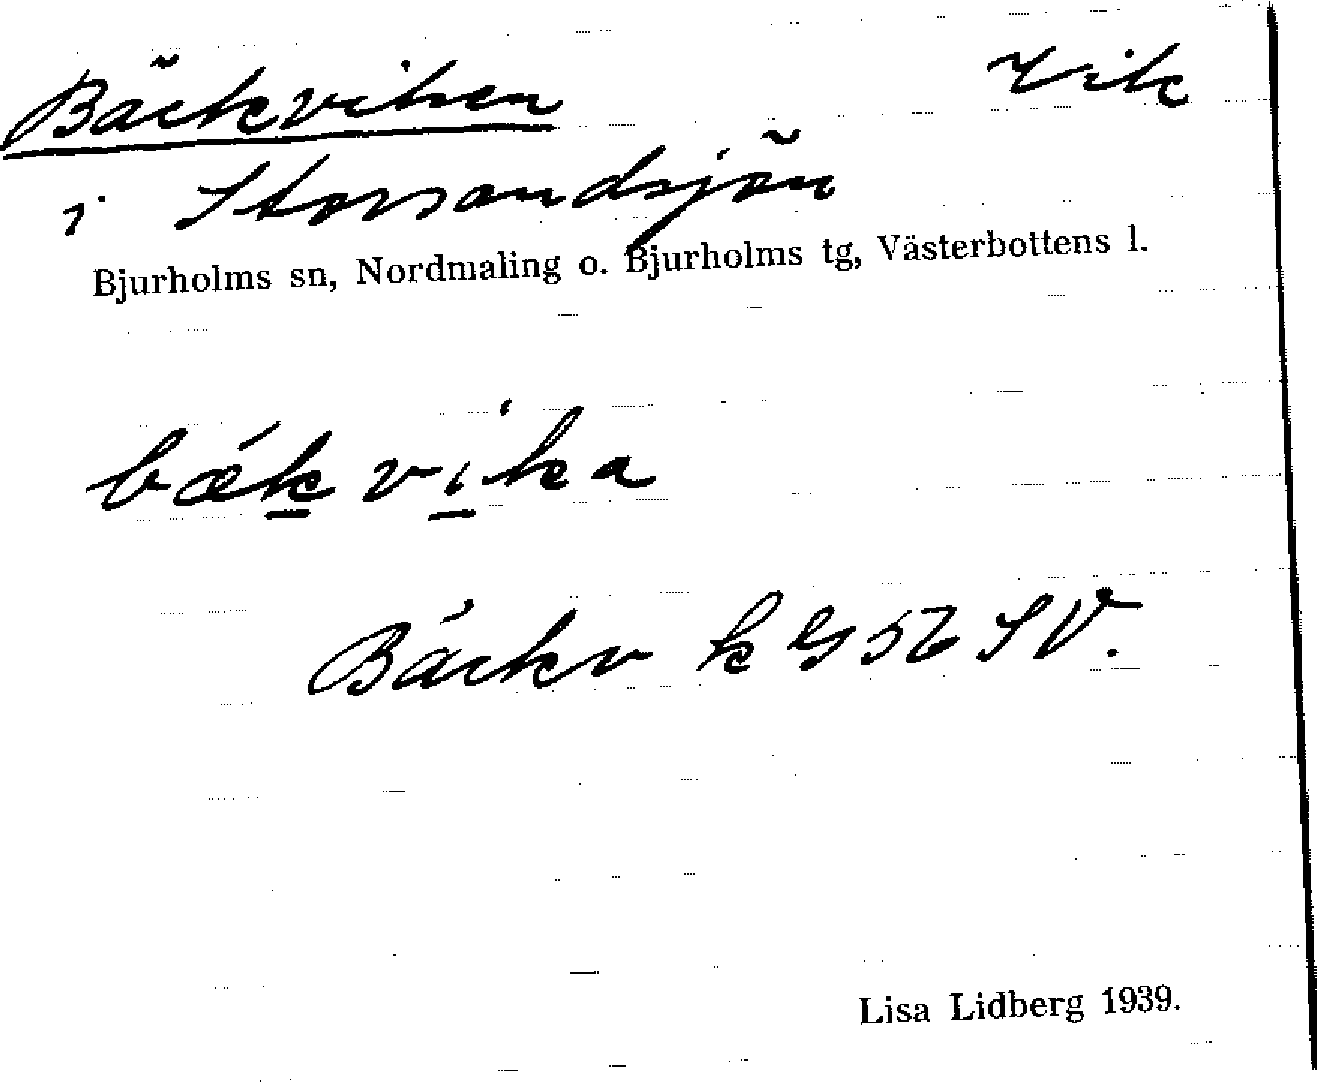 Bäckviken Vik
i Storsandsjön
Bjurholms sn, Nordmaling o. Bjurholms tg, Västerbottens l.
bǽk̲ vi̲ka
Bäckv k G 56 SV.
Lisa Lidberg 1939.